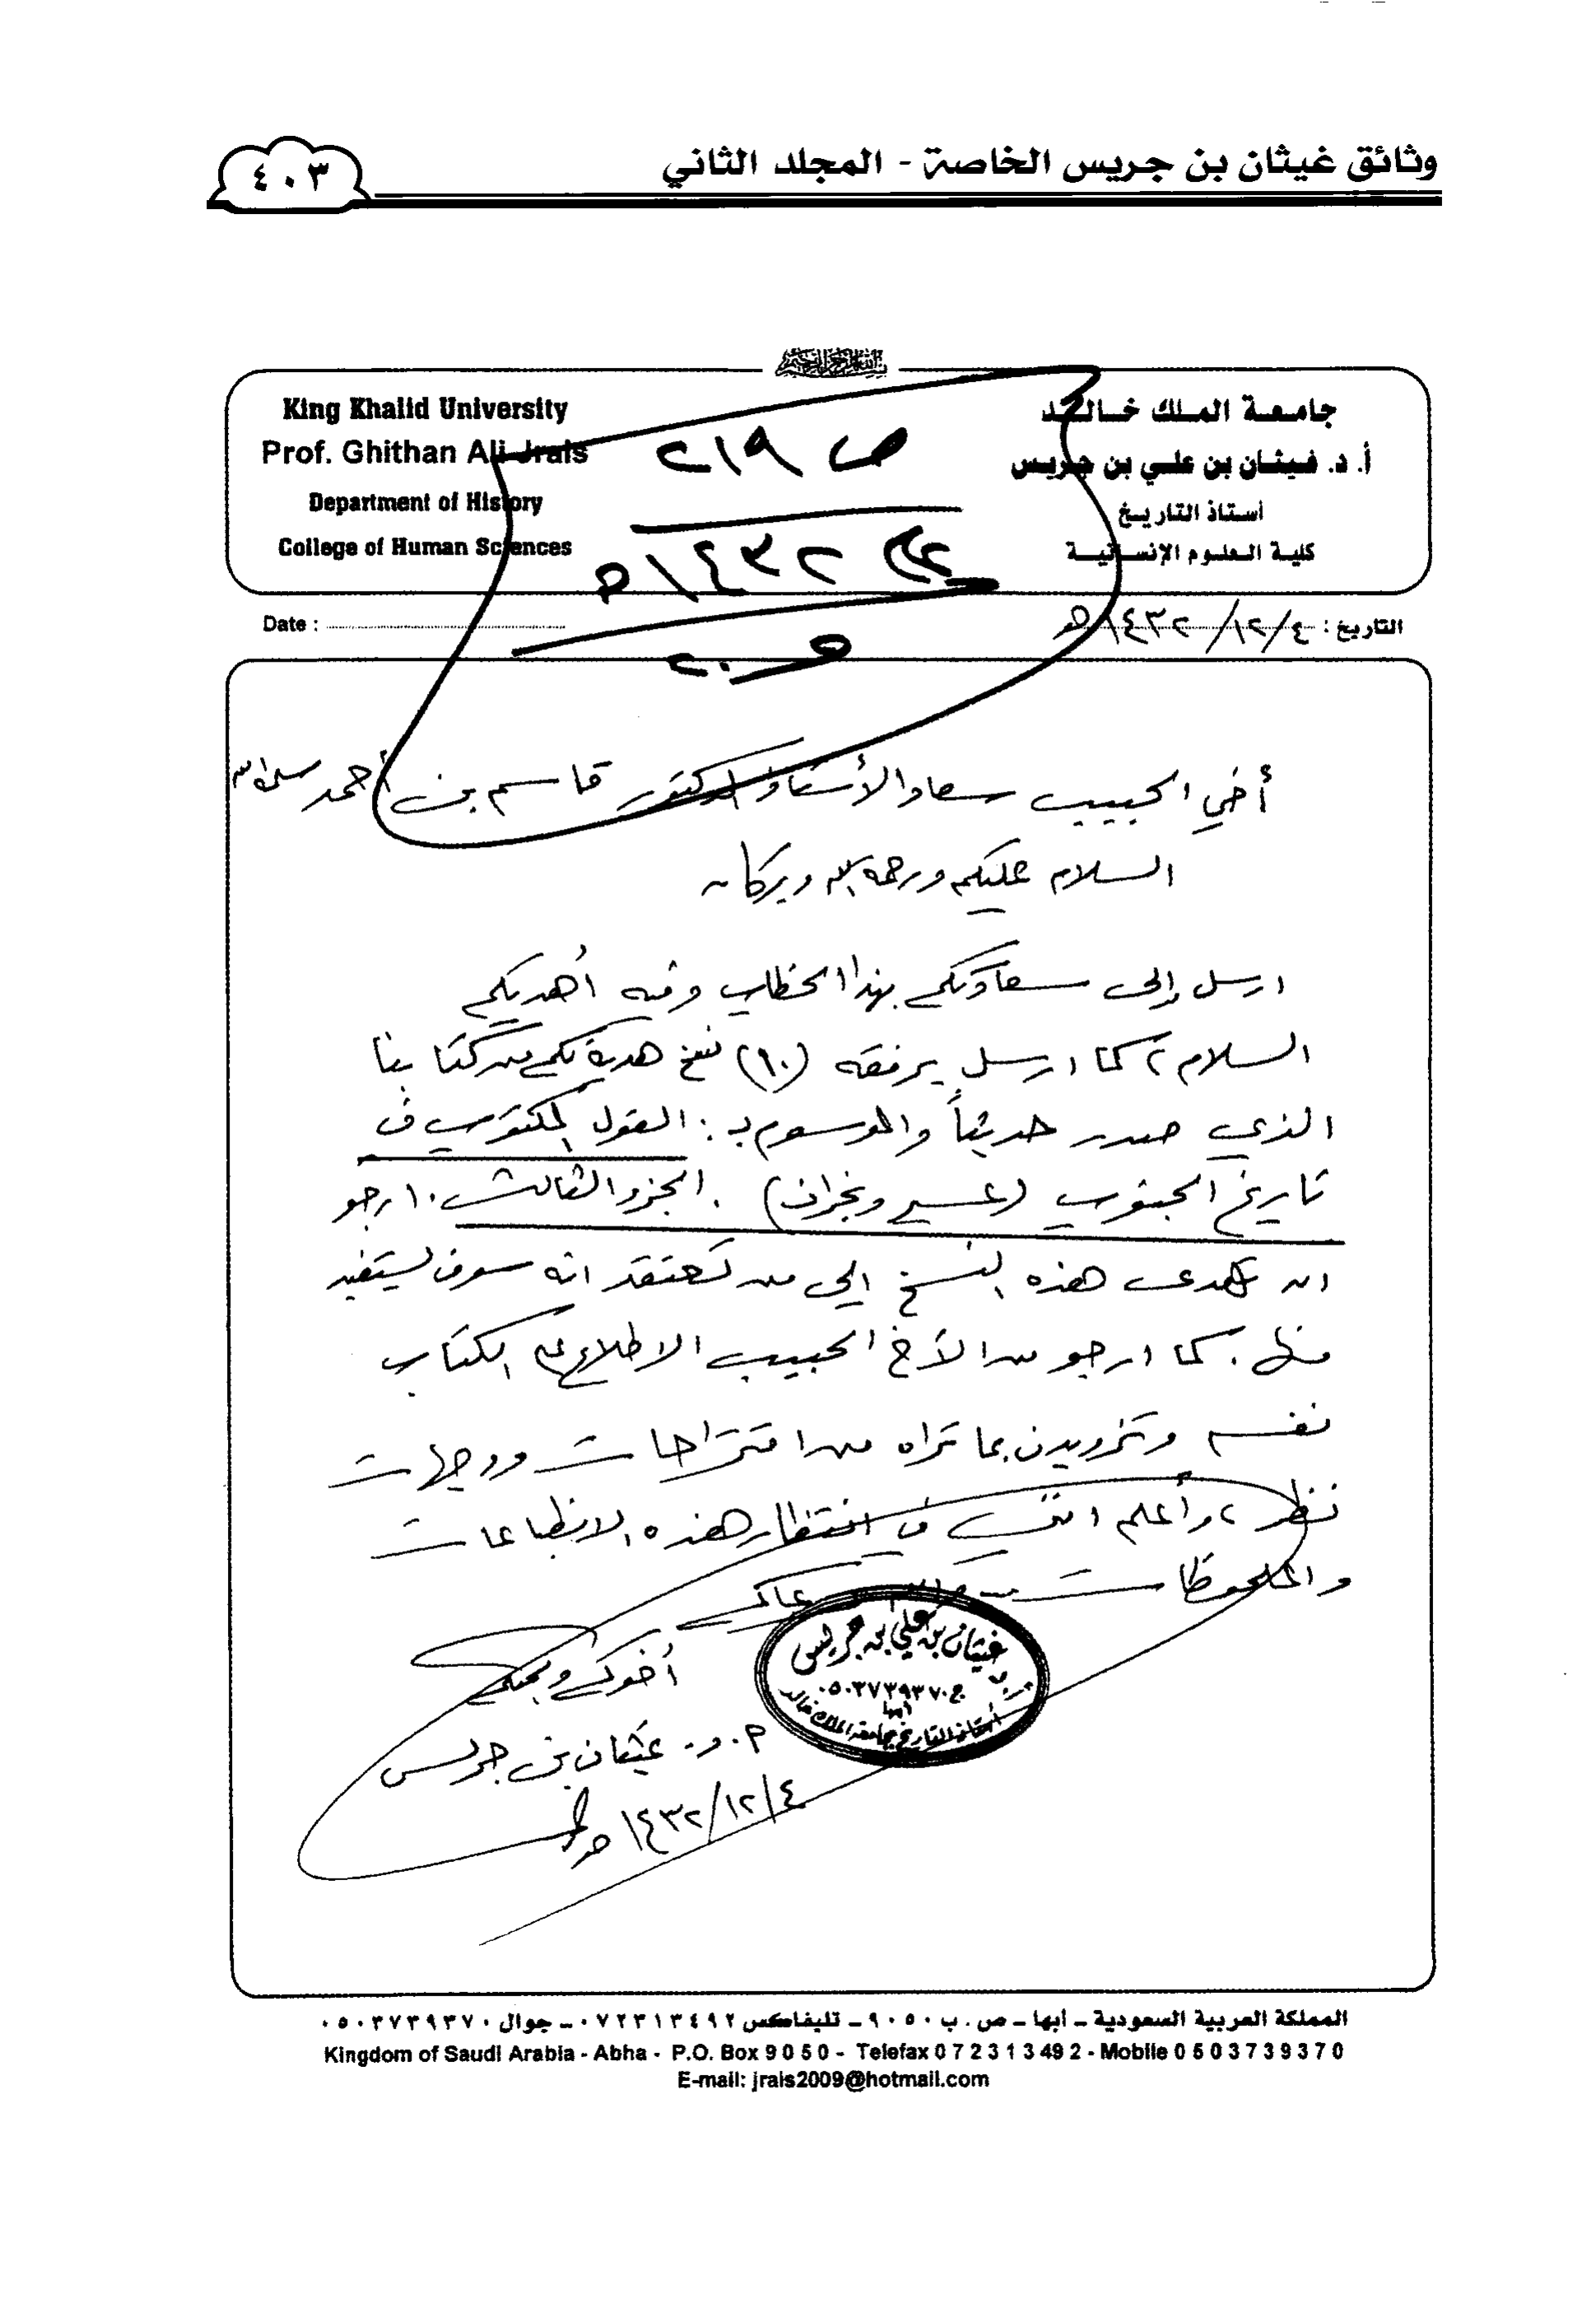 وثائق غيثان بن جريس الخاصة - المجلد الثاني
٤٠٣
جامعة الملك خالد
أ. د. غيثان بن علي بن جريس
أستاذ التاريخ
كلية العلوم الإنسانية
King Khalid University
Prof. Ghithan Ali Jrais
Department of History
College of Human Sciences
ص ٢١٩
١٤٣٢هـ
التاريخ : ١٤٣٢/١٢/٤هـ
Date :
أخي الحبيب سعادة الأستاذ الدكتور قاسم بن أحمد سلمه الله
السلام عليكم ورحمة الله وبركاته
ارسل إلى سعادتكم بهذا الخطاب وفيه أهديكم
السلام ، كما ارسل برفقه (١٠) نسخ هدية لكم من كتابنا
الذي صدر حديثاً والموسوم بـ : القول المكتوب في
تاريخ الجنوب (عسير ونجران) . الجزء الثالث . ارجو
ان تهدى هذه النسخ إلى من تعتقد انه سوف يستفيد
منها . كما ارجو من الأخ الحبيب الاطلاع على الكتاب
نفسه وتزويدي بما تراه من اقتراحات ووجهات
نظر ، وأعلم انني في انتظار هذه الانطباعات
والملحوظات
أخوكم ومحبكم
أ. د. غيثان بن جريس
١٤٣٢/١٢/٤هـ
غيثان بن علي بن جريس
ج ٠٥٠٣٧٣٩٣٧٠
أبها
أستاذ التاريخ بجامعة الملك خالد
المملكة العربية السعودية ـ أبها ـ ص . ب ٩٠٥٠ ـ تليفاكس ٠٧٢٣١٣٤٩٢ ـ جوال ٠٥٠٣٧٣٩٣٧٠
Kingdom of Saudi Arabia - Abha - P.O. Box 9 0 5 0 - Telefax 0 7 2 3 1 3 49 2 - Mobile 0 5 0 3 7 3 9 3 7 0
E-mail: jrais2009@hotmail.com